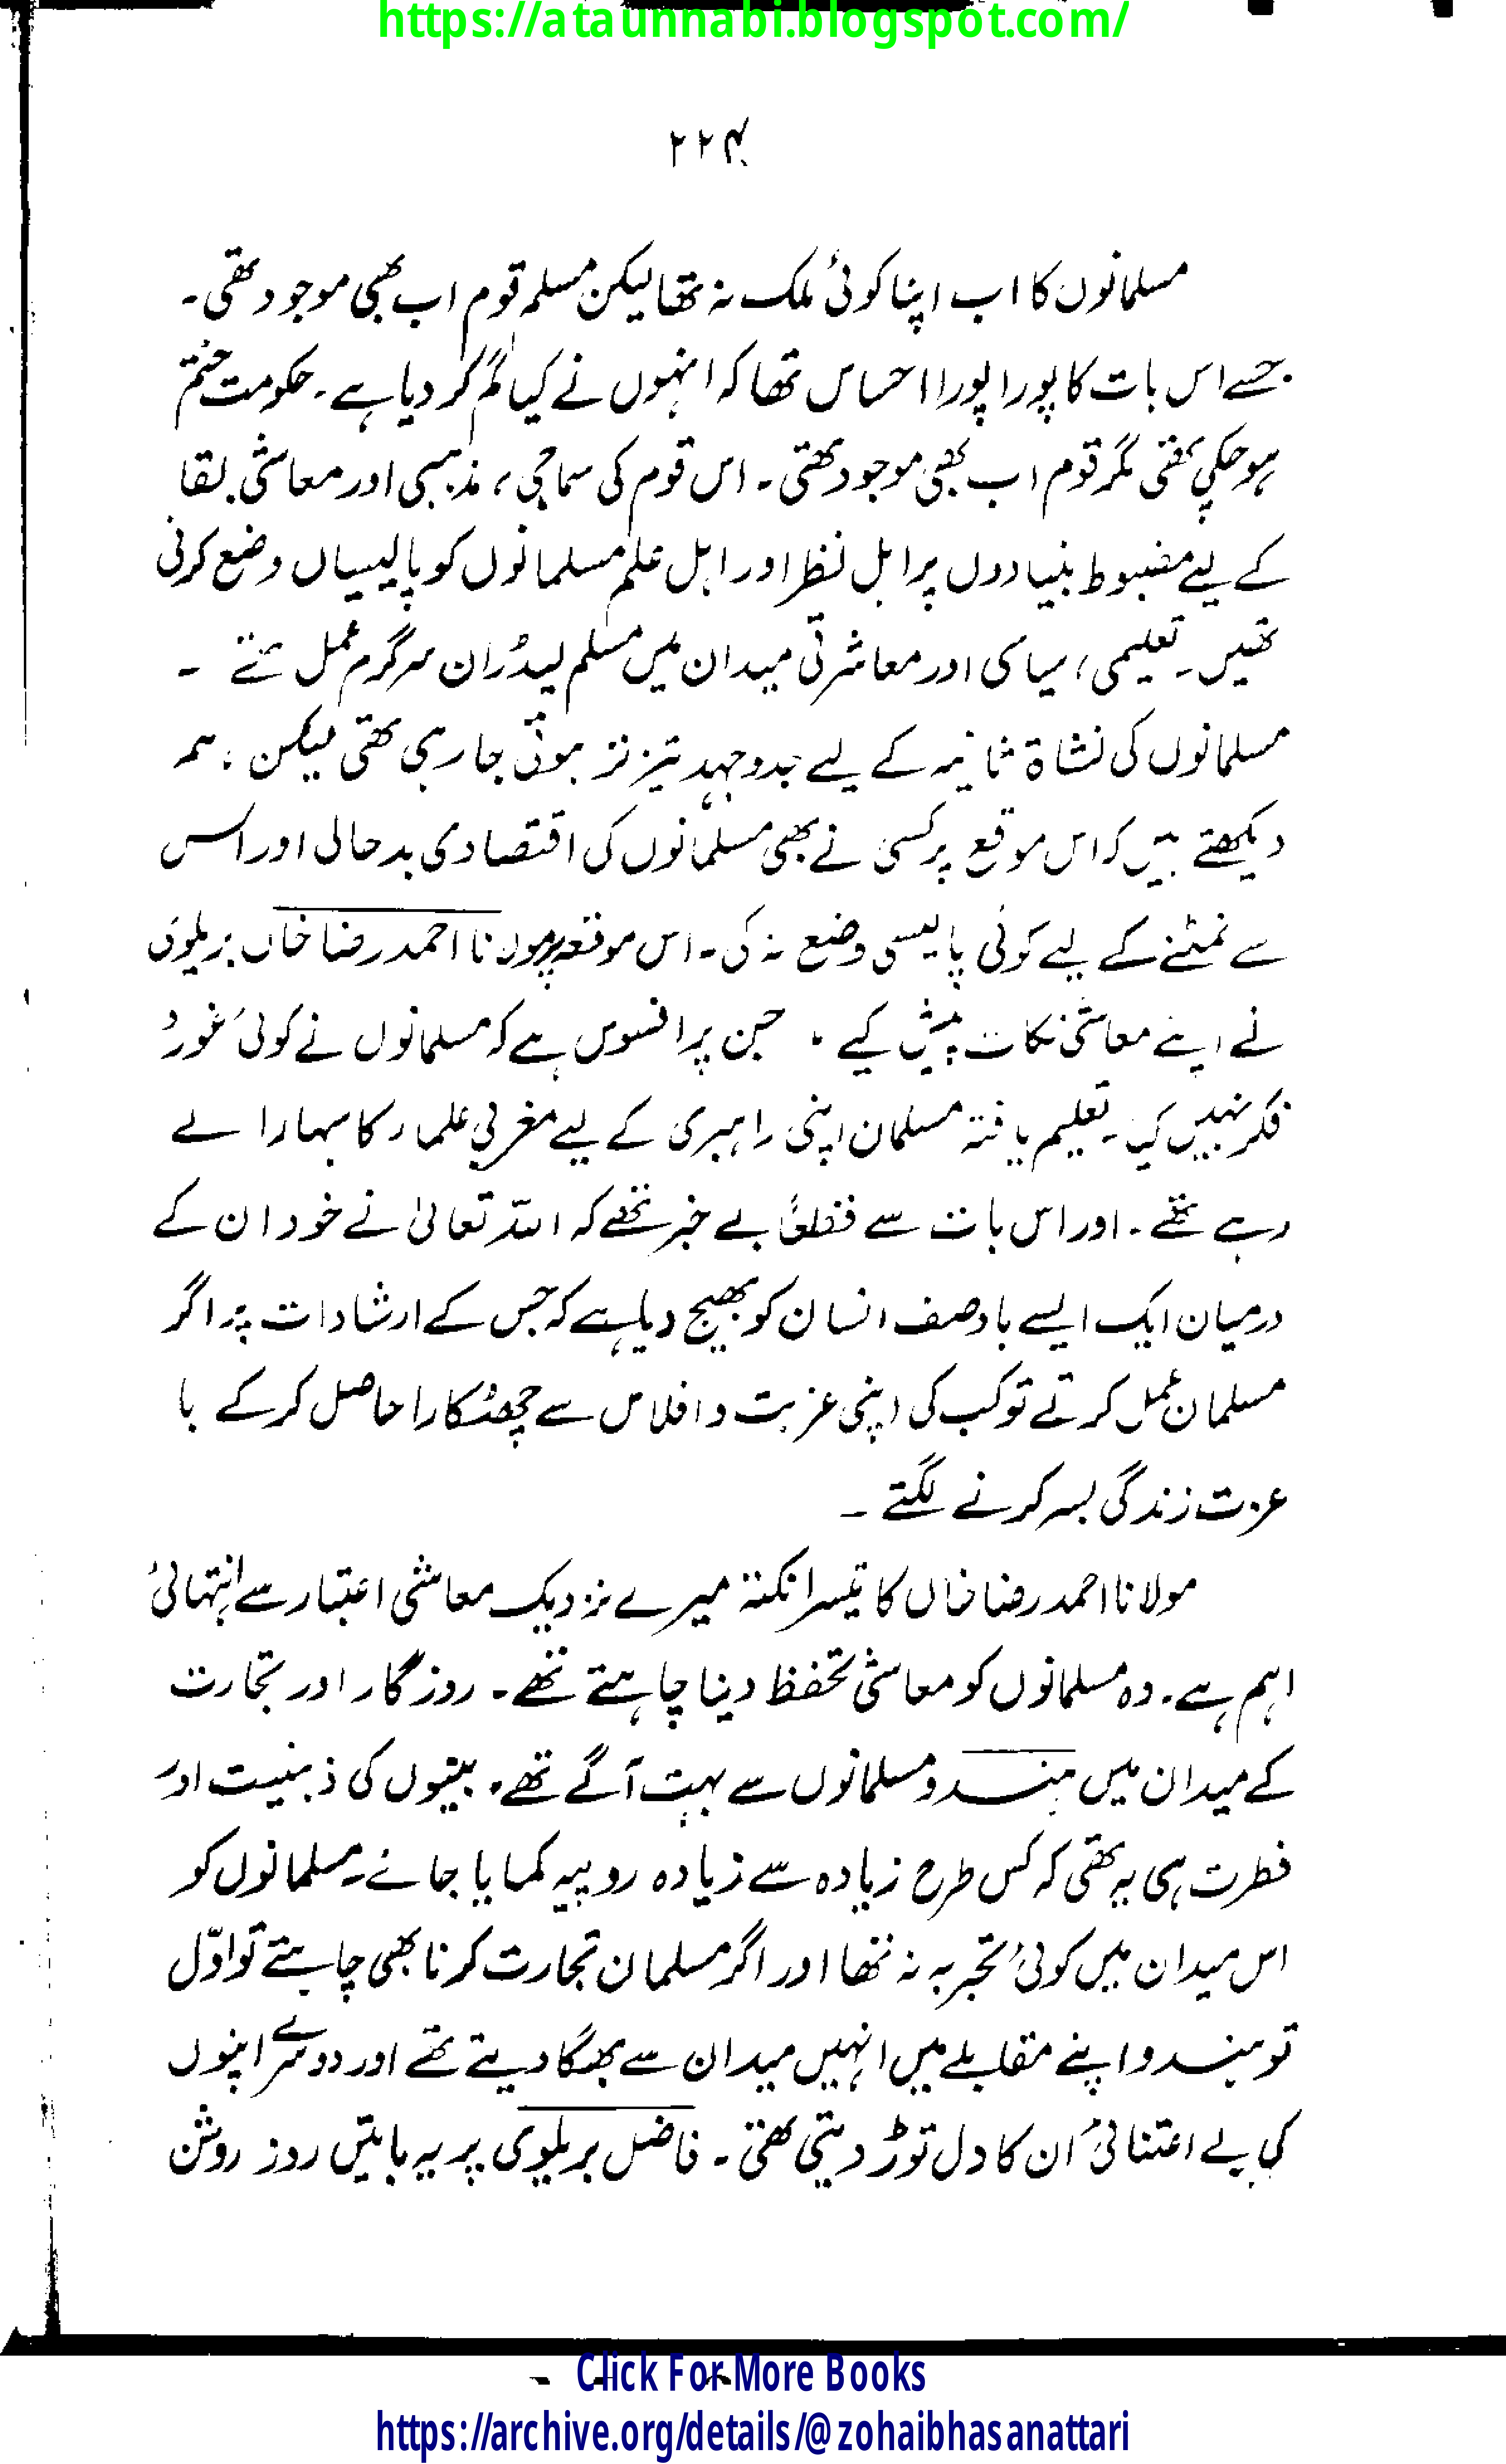 https://ataunnabi.blogspot.com/
۲۲۴
مسلمانوں کا اب اپنا کوئی ملک نہ تھا لیکن مسلم قوم اب بھی موجود تھی۔
جسے اس بات کا پورا پورا احساس تھا کہ انہوں نے کیا گم کر دیا ہے۔ حکومت ختم
ہو چکی تھی مگر قوم اب بھی موجود تھی۔ اس قوم کی سماجی، مذہبی اور معاشی بقا
کے لیے مضبوط بنیادوں پر اہل نظر اور اہل علم مسلمانوں کو پالیسیاں وضع کرنی
تھیں۔ تعلیمی، سیاسی اور معاشرتی میدان میں مسلم لیڈران سرگرم عمل تھے ۔
مسلمانوں کی نشاۃ ثانیہ کے لیے جدوجہد تیز تر ہوتی جا رہی تھی لیکن، ہم
دیکھتے ہیں کہ اس موقع پر کسی نے بھی مسلمانوں کی اقتصادی بدحالی اور اس
سے نمٹنے کے لیے کوئی پالیسی وضع نہ کی۔ اس موقعہ پر مولانا احمد رضا خاں بریلوی
نے اپنے معاشی نکات پیش کیے ۔ جن پر افسوس ہے کہ مسلمانوں نے کوئی غور و
فکر نہیں کیا۔ تعلیم یافتہ مسلمان اپنی راہبری کے لیے مغربی علماء کا سہارا لے
رہے تھے۔ اور اس بات سے قطعاً بے خبر تھے کہ اللہ تعالیٰ نے خود ان کے
درمیان ایک ایسے باوصف انسان کو بھیج دیا ہے کہ جس کے ارشادات پر اگر
مسلمان عمل کرتے تو کب کی اپنی غربت و افلاس سے چھٹکارا حاصل کر کے با
عزت زندگی بسر کرنے لگتے ۔
مولانا احمد رضا خاں کا تیسرا نکتہ میرے نزدیک معاشی اعتبار سے انتہائی
اہم ہے۔ وہ مسلمانوں کو معاشی تحفظ دینا چاہتے تھے۔ روزگار اور تجارت
کے میدان میں ہندو مسلمانوں سے بہت آگے تھے۔ بنیوں کی ذہنیت اور
فطرت ہی یہ تھی کہ کس طرح زیادہ سے زیادہ روپیہ کمایا جائے۔ مسلمانوں کو
اس میدان میں کوئی تجربہ نہ تھا اور اگر مسلمان تجارت کرنا بھی چاہتے تو اوّل
تو ہندو اپنے مقابلے میں انہیں میدان سے بھگا دیتے تھے اور دوسرے اپنوں
کی بے اعتنائی ان کا دل توڑ دیتی تھی۔ فاضل بریلوی پر یہ باتیں روز روشن
Click For More Books
https://archive.org/details/@zohaibhasanattari